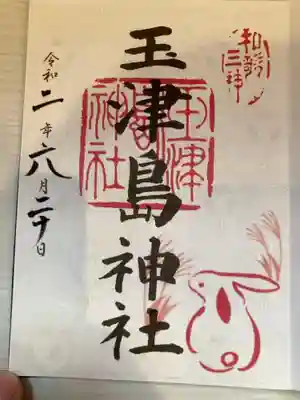 和歌
三神
玉津島神社
玉津
神社
令和二年六月二十日